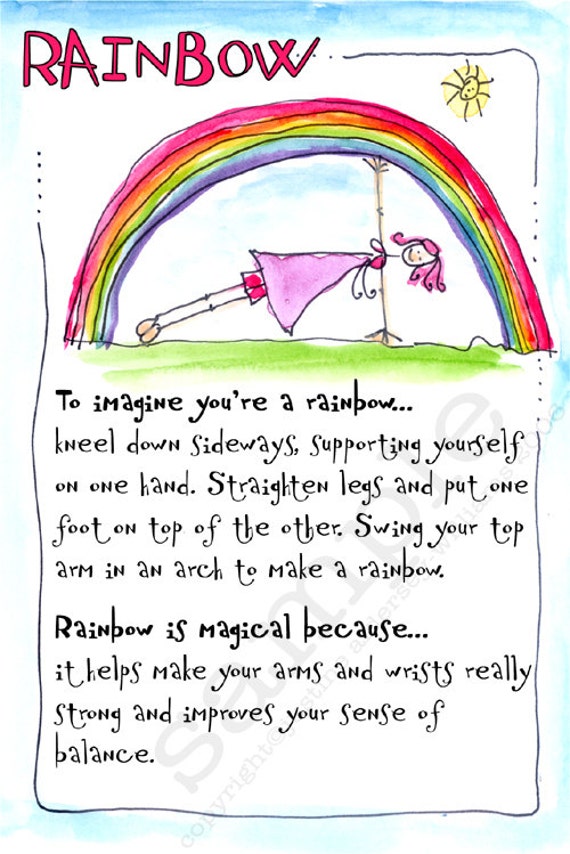 RAINBOW
To imagine you're a rainbow...
kneel down sideways, supporting yourself
on one hand. Straighten legs and put one
foot on top of the other. Swing your top
arm in an arch to make a rainbow.
Rainbow is magical because...
it helps make your arms and wrists really
strong and improves your sense of
balance.
sample